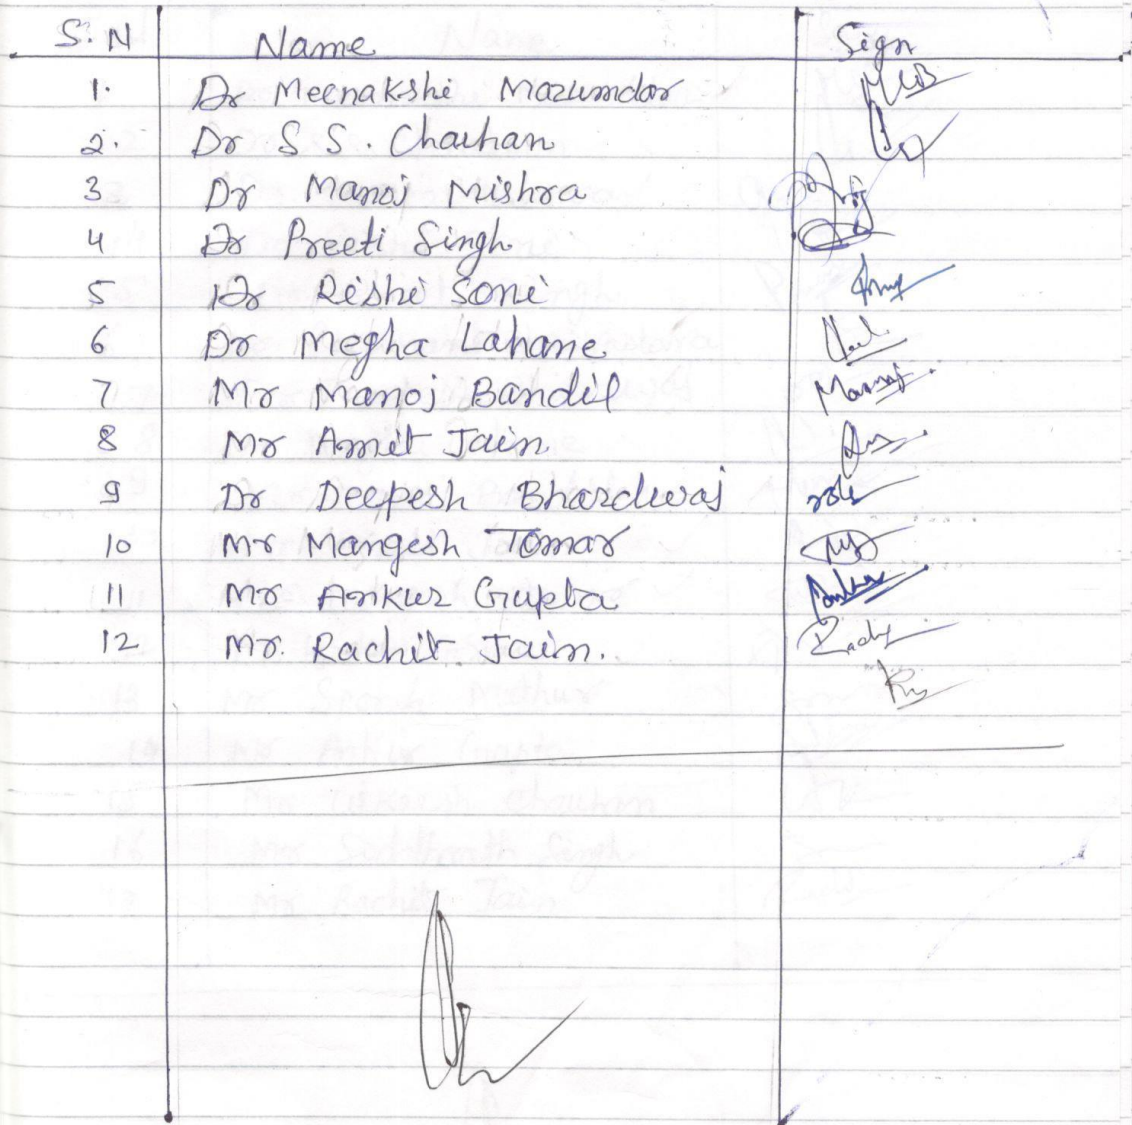 S.N Name Sign
1. Dr Meenakshi Mazumdar
2. Dr S S. Chauhan
3 Dr Manoj Mishra
4 Dr Preeti Singh
5 Dr Rishi Soni
6 Dr Megha Lahane
7 Mr Manoj Bandil Manoj
8 Mr Amit Jain
9 Dr Deepesh Bhardwaj
10 Mr Mangesh Tomar
11 Mr Ankur Gupta
12 Mr. Rachit Jain.